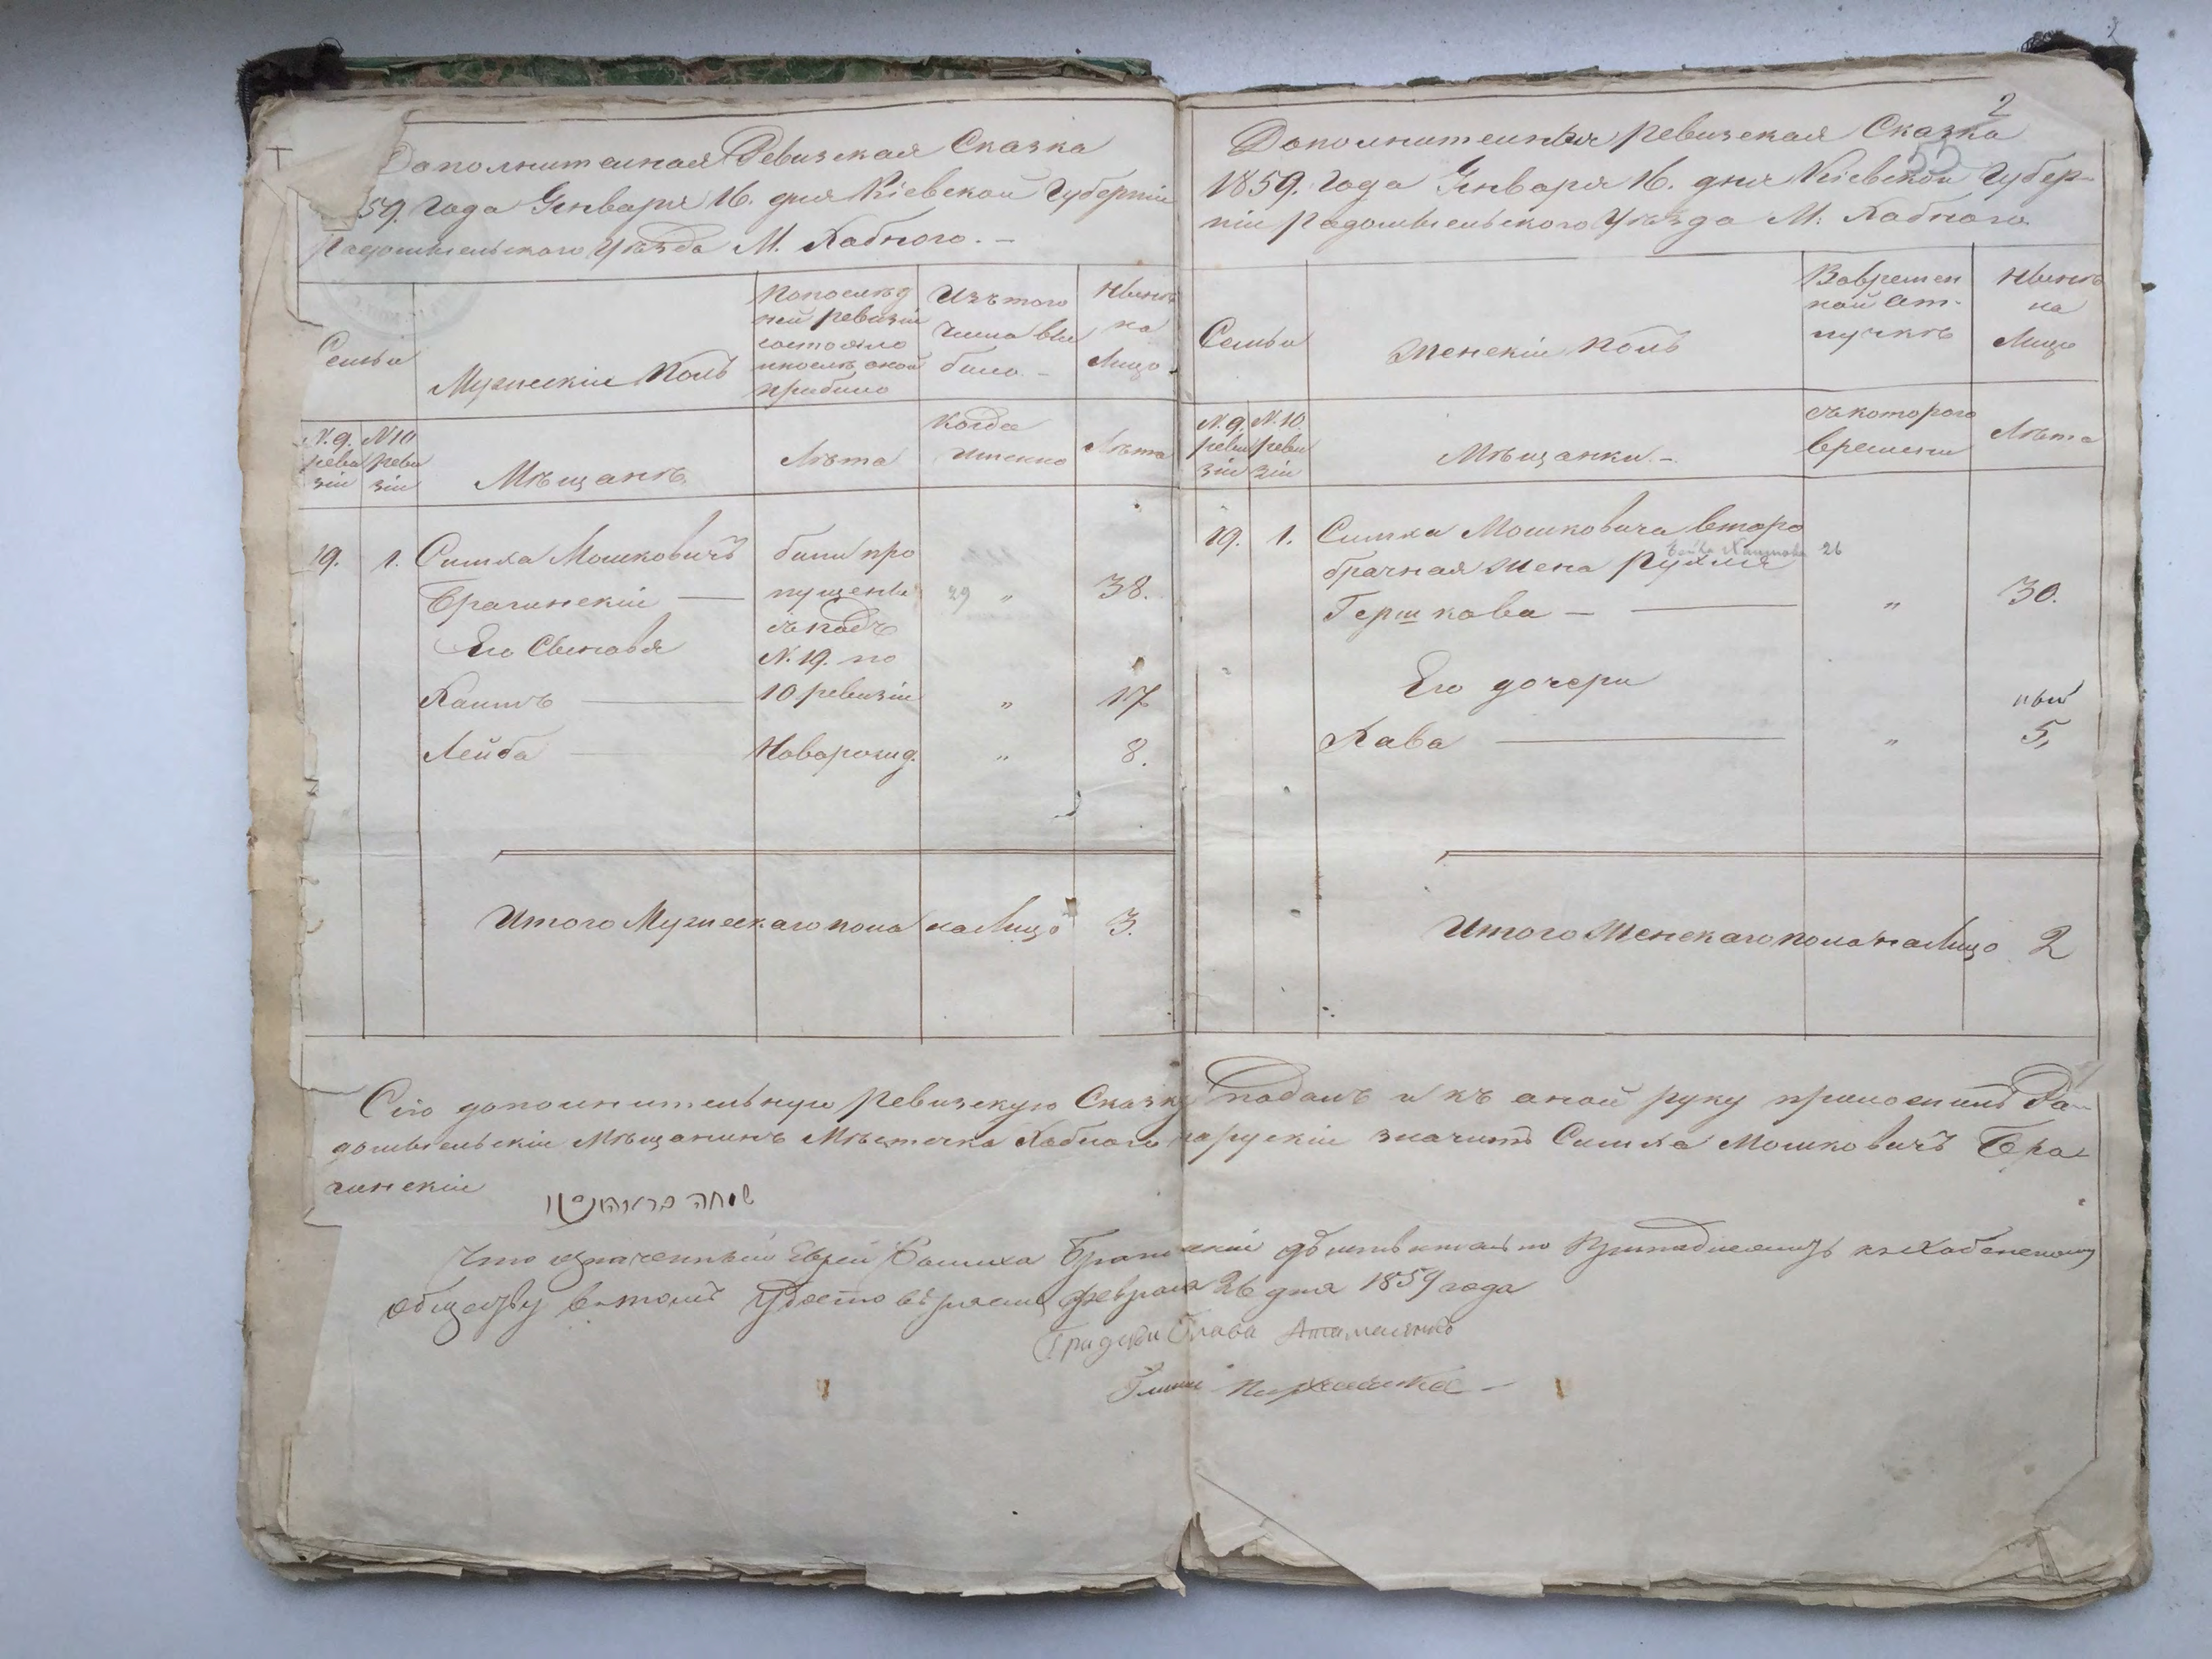 Дополнителная Ревизская Сказка
59. Года Генваря 16. дня Кіевской Губерніи
Радомысльского Уѣзда М. Хабного. –
Семьи
Мужескій Полъ
По послѣд
ней ревизіи
состояло
и послѣ оной
прибило
Изъ того
числа вы
било –
Нынѣ
на
Лицо
N. 9.
реви
зіи
N 10
реви
зіи
Мѣщанѣ
Лѣта
Когда
имѣнно
Лѣта
19.
1.
Симха Мошковичъ
Брагинскій —
Его Сыновя
были про
пущены
съ подъ
N. 19. по
10 ревизіи
29
"
38.
Хаимъ —
"
17
Лейба —
Новорожд.
"
8.
Итого Мужескаго пола на Лицо 3.
2
55
Дополнителная ревизская Сказка
1859. Года Генваря 16. дня Кіевской Губер–
ніи Радомысльского Уѣзда М. Хабного
Семьи
Женскій полъ
Во времен
ной от–
лучкѣ
Нынѣ
на
Лицо
N. 9.
реви
зіи
N. 10.
реви
зіи
Мѣщанки. –
съ которого
времени
Лѣта
19.
1.
Симха Мошковича второ
брачная жена Рухля
Хаимова 26
Гершкова –
"
30.
Его дочери
Хава —
"
5,
Итого Женскаго пола на Лицо 2
Сію дополнительную ревизскую Сказку подалъ и къ оной руку приложилъ Ра–
домысльскій Мѣщанинъ Мѣстечка Хабного по руский значитъ Симха Мошковичъ Бра–
гинскій
שמחה בראהינסקי
Что означенный Еврей Симха Брагинскій дѣйствительно Принадлежитъ къ Хабенскому
обществу в томъ Удостовѣряемъ Февраля 26 дня 1859 года
Градскій Глава